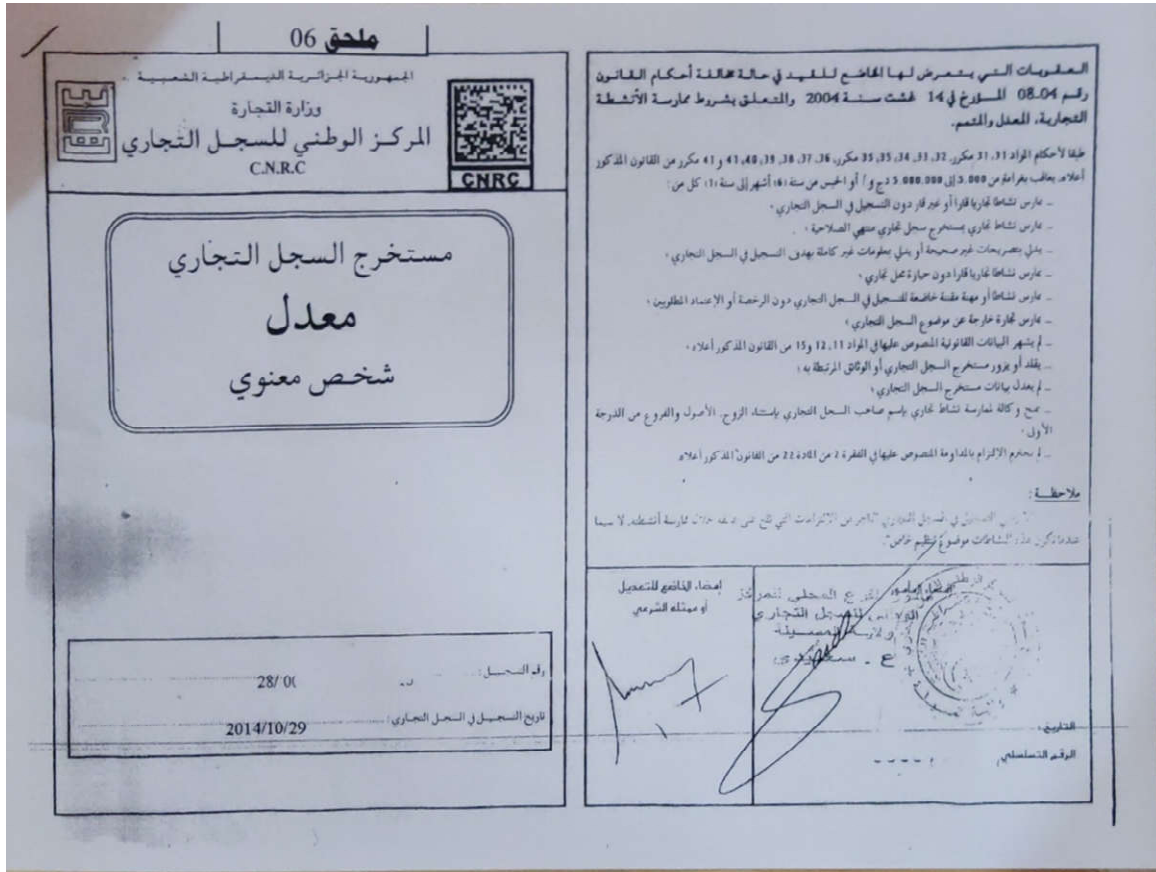 ملحق 06
الجمهورية الجزائرية الديمقراطية الشعبية
وزارة التجارة
المركز الوطني للسجل التجاري
C.N.R.C
CNRC
مستخرج السجل التجاري
معدل
شخص معنوي
رقم السجل :
28/ 0
تاريخ التسجيل في السجل التجاري :
2014/10/29
العقوبات التي يتعرض لها الخاضع للقيد في حالة مخالفة أحكام القانون
رقم 04-08 المؤرخ في 14 غشت سنة 2004 والمتعلق بشروط ممارسة الأنشطة
التجارية، المعدل والمتمم.
طبقا لأحكام المواد 31، 31 مكرر، 32، 33، 34، 35، 35 مكرر، 36، 37، 38، 39، 40، 41 و 41 مكرر من القانون المذكور
أعلاه، يعاقب بغرامة من 5.000 إلى 5.000.000 دج و / أو الحبس من ستة (6) أشهر إلى سنة (1) كل من :
ـ يمارس نشاطا تجاريا قارا أو غير قار دون التسجيل في السجل التجاري ،
ـ يمارس نشاط تجاري بمستخرج سجل تجاري منتهي الصلاحية ،
ـ يدلي بتصريحات غير صحيحة أو يدلي بمعلومات غير كاملة بهدف التسجيل في السجل التجاري ،
ـ يمارس نشاطا تجاريا قارا دون حيازة محل تجاري ،
ـ يمارس نشاطا أو مهنة مقننة خاضعة للتسجيل في السجل التجاري دون الرخصة أو الإعتماد المطلوبين ،
ـ يمارس تجارة خارجة عن موضوع السجل التجاري ،
ـ لم يشهر البيانات القانونية المنصوص عليها في المواد 11، 12 و15 من القانون المذكور أعلاه ،
ـ يقلد أو يزور مستخرج السجل التجاري أو الوثائق المرتبطة به ،
ـ لم يعدل بيانات مستخرج السجل التجاري ،
ـ منح وكالة لممارسة نشاط تجاري بإسم صاحب السجل التجاري بإستثناء الزوج، الأصول والفروع من الدرجة
الأولى ،
ـ لم يحترم الإلتزام بالمداومة المنصوص عليها في الفقرة 2 من المادة 22 من القانون المذكور أعلاه
ملاحظة :
التسجيل في السجل التجاري التاجر من الإلتزامات التي تقع على عاتقه خلال ممارسة أنشطته، لا سيما
عندما تكون هذه النشاطات موضوع تنظيم خاص".
إمضاء الخاضع للتعديل
أو ممثله الشرعي
الفرع المحلي للمركز
الوطني للسجل التجاري
ولاية المسيلة
التاريخ :
الرقم التسلسلي